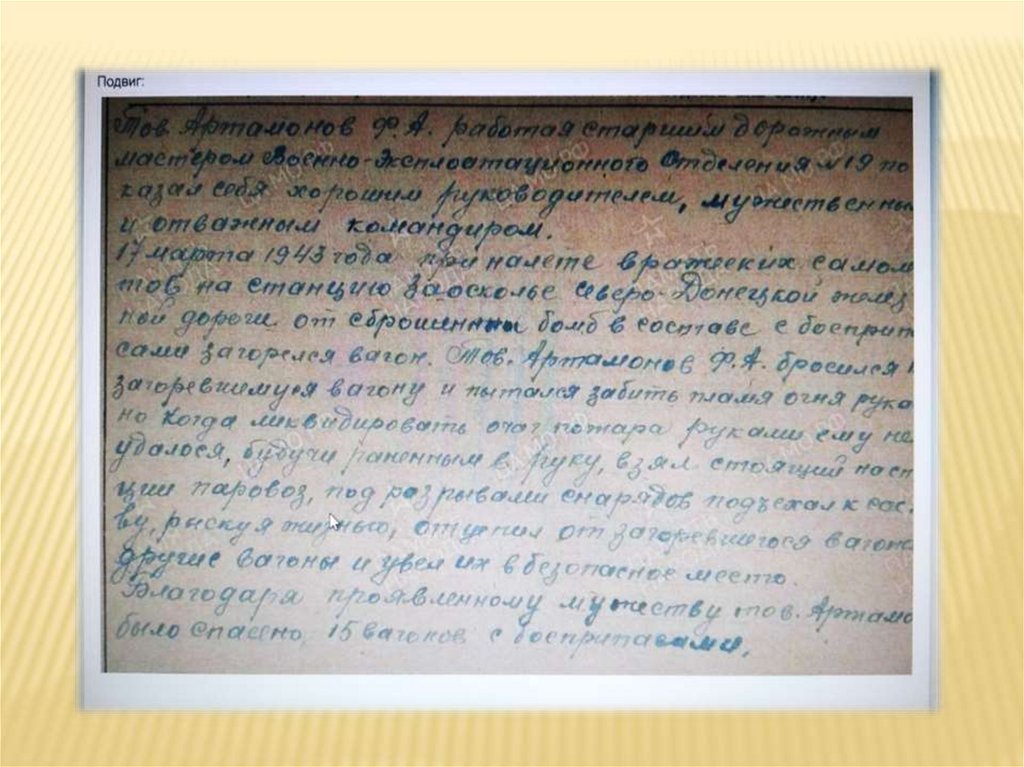 Подвиг:
Тов. Артамонов Ф.А. работая старшим дорожным
мастером Военно-Эксплоатационного Отделения №19 по
казал себя хорошим руководителем, мужественны
и отважным командиром.
17 марта 1943 года при налете вражеских самол
тов на станцию Заосколье Северо-Донецкой желез
ной дороги от сброшенных бомб в составе с боеприп
сами загорелся вагон. Тов. Артамонов Ф.А. бросился к
загоревшемуся вагону и пытался забить пламя огня рука
но когда ликвидировать очаг пожара руками ему не
удалося, будучи раненным в руку, взял стоящий на ст
ции паровоз, под разрывами снарядов подъехал к сос
ву, рыскуя жизнью, отцепил от загоревшегося вагона
другие вагоны и увел их в безопасное место.
Благодаря проявленному мужеству тов. Артамо
было спасено 15 вагонов с боеприпасами.